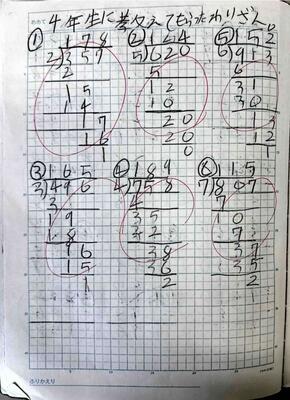 めあて
4年生に考えてもらったわりざん
① 178
2)357
2
15
14
17
16
1
② 124
5)620
5
12
10
20
20
0
⑤ 152
6)913
6
31
30
13
12
1
③ 165
3)496
3
19
18
16
15
1
④ 189
4)758
4
35
32
38
36
2
⑥ 115
7)807
7
10
7
37
35
2
ふりかえり